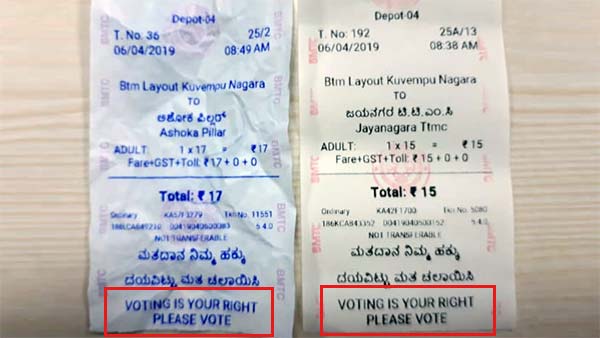 Depot-04
T. No: 36 25/2
06/04/2019 08:49 AM
Btm Layout Kuvempu Nagara
TO
ಅಶೋಕ ಪಿಲ್ಲರ್
Ashoka Pillar
ADULT: 1 x 17 = ₹17
Fare+GST+Toll: ₹17 + 0 + 0
Total: ₹ 17
Ordinary KA57F3779 Tkn No: 11551
5.4.0
NOT TRANSFERABLE
ಮತದಾನ ನಿಮ್ಮ ಹಕ್ಕು
ದಯವಿಟ್ಟು ಮತ ಚಲಾಯಿಸಿ
VOTING IS YOUR RIGHT
PLEASE VOTE
Depot-04
T. No: 192 25A/13
06/04/2019 08:38 AM
Btm Layout Kuvempu Nagara
TO
ಜಯನಗರ ಟಿ.ಟಿ.ಎಂ.ಸಿ
Jayanagara Ttmc
ADULT: 1 x 15 = ₹ 15
Fare+GST+Toll: ₹ 15 + 0 + 0
Total: ₹ 15
Ordinary KA42F1700 Tkt No: 5080
186KCA843352 00419040500152 5.4.0
NOT TRANSFERABLE
ಮತದಾನ ನಿಮ್ಮ ಹಕ್ಕು
ದಯವಿಟ್ಟು ಮತ ಚಲಾಯಿಸಿ
VOTING IS YOUR RIGHT
PLEASE VOTE
BMTC
BMTC
BMTC